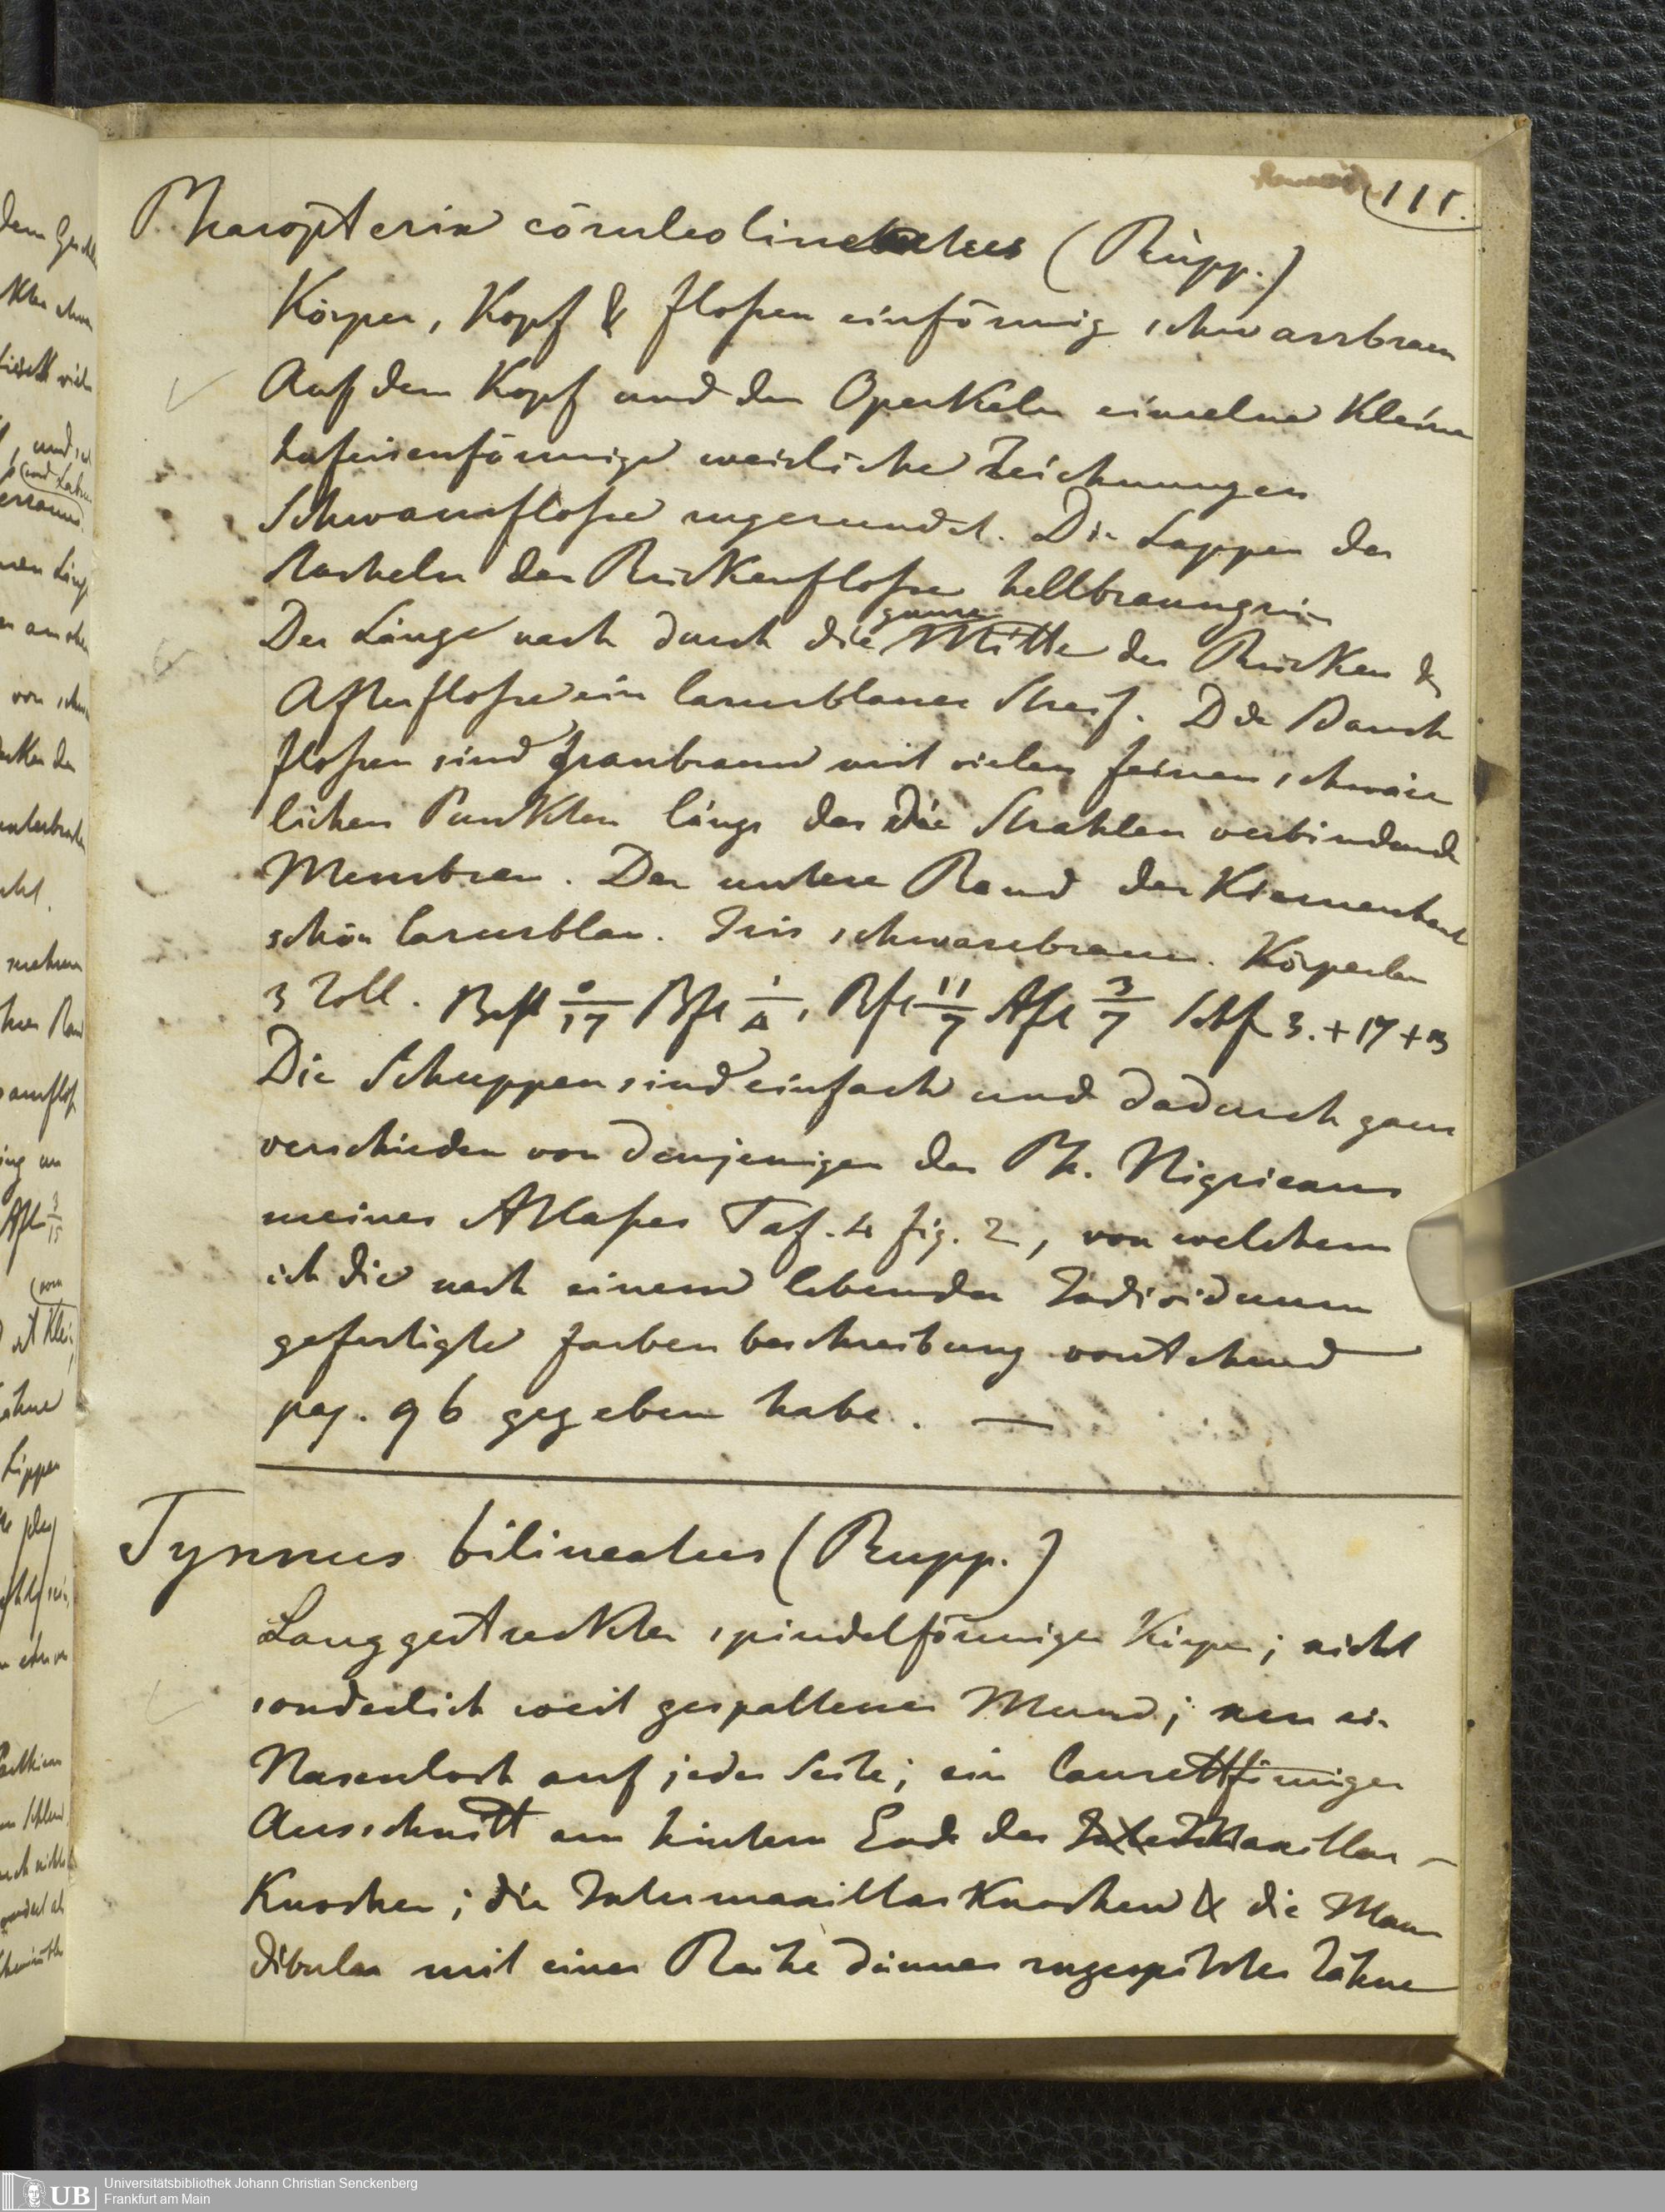 111.
Pharopterix cöruleolineatus (Rüpp.)
Körper, Kopf & floßen einförmig schwarzbraun
Auf dem Kopf und den Operkeln einzelne kleine
hufeisenförmige weisliche Zeichnungen
Schwanzfloße zugerundet. Die Lappen der
Stacheln der Rückenfloße hellbraungrün
Der Länge nach durch die ganze Mitte der Rücken &
Afterfloße ein lasurblauer Streif. Die Bauch
floßen sind graubraun mit vielen feinen schwärz
lichen Punkten längs der die Strahlen verbindende
Membran. Der untere Rand der Kiemenhaut
schön lasurblau. Iris schwarzbraun. Körperlän
3 Zoll. Brfl 0/17 Bfl 1/4, Rfl 11/7 Afl 3/7 Schfl 3.+17+3
Die Schuppen sind einfach und dadurch ganz
verschieden von denjenigen des Ph. Nigricans
meines Atlaßes Taf. 4 fig. 2, von welchem
ich die nach einem lebenden Individuum
gefertigte farben beschreibung vorstehend
pag. 96 gegeben habe. —
Tynnus bilineatus (Rupp.)
Langgestreckter spindelförmiger Körper; nicht
sonderlich weit gespaltener Mund; nur ein
Nasenloch auf jeder Seite; ein lanzettförmiger
Ausschnitt am hintern Ende des Intermaxillar-
Knochen; die Intermaxillar Knochen & die Man
dibular mit einer Reihe dünner zugespitzter Zähne